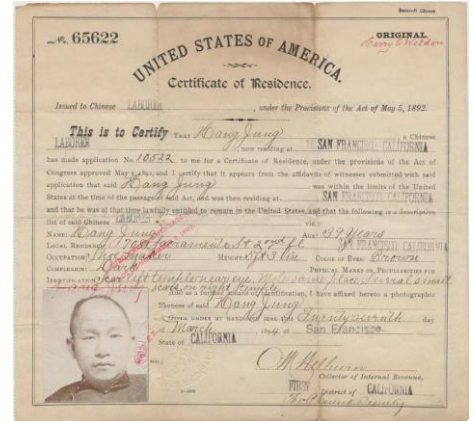 Bancroft Library
No. 65622
ORIGINAL.
UNITED STATES OF AMERICA.
Certificate of Residence.
Issued to Chinese LABORER, under the Provisions of the Act of May 5, 1892.
This is to Certify THAT Hang Jung a Chinese
LABORER now residing at SAN FRANCISCO, CALIFORNIA
has made application No. 10622 to me for a Certificate of Residence, under the provisions of the Act of
Congress approved May 5, 1892, and I certify that it appears from the affidavits of witnesses submitted with said
application that said Hang Jung was within the limits of the United
States at the time of the passage of said Act, and was then residing at SAN FRANCISCO, CALIFORNIA
and that he was at that time lawfully entitled to remain in the United States, and that the following is a descriptive
list of said Chinese LABORER viz.:
NAME: Hang Jung AGE: 39 years
LOCAL RESIDENCE: Sacramento St 2nd fl SAN FRANCISCO, CALIFORNIA
OCCUPATION: Shoemaker HEIGHT: 5 ft 3 in. COLOR OF EYES: Brown
COMPLEXION: Dark PHYSICAL MARKS OR PECULIARITIES FOR
IDENTIFICATION: scar left temple near eye. Mole same place, several small
Hang Jung scars on right temple
And as a further means of identification, I have affixed hereto a photographic
likeness of said Hang Jung
GIVEN UNDER MY HAND AND SEAL this Twenty seventh day
of March, 1894, at San Francisco,
State of CALIFORNIA
Collector of Internal Revenue,
FIRST District of CALIFORNIA